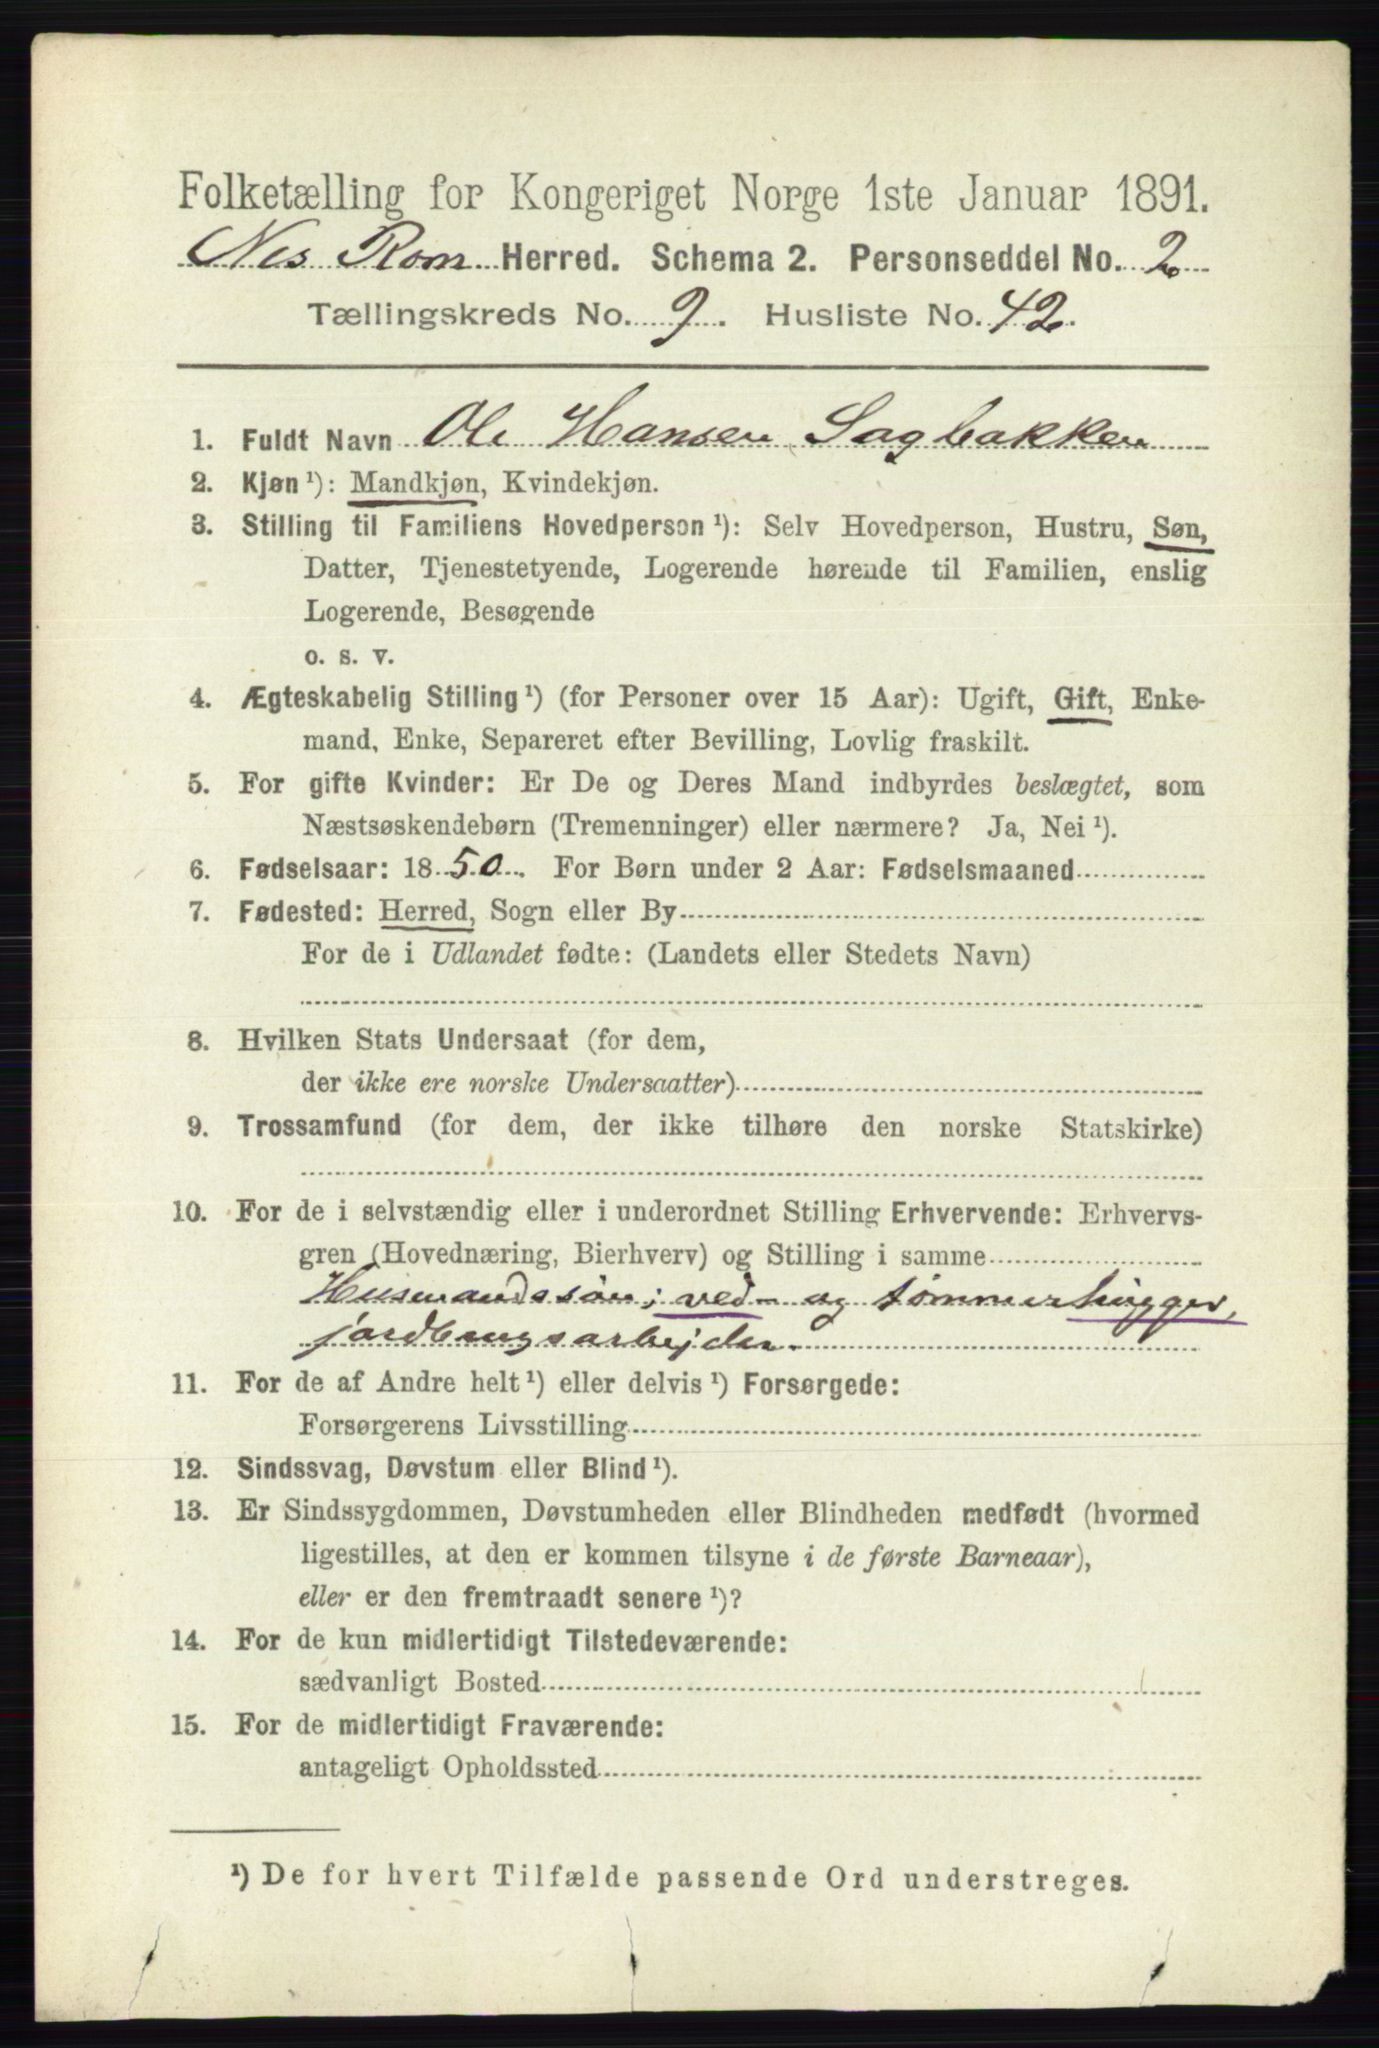 Folketælling for Kongeriget Norge 1ste Januar 1891.
Nes Rom Herred. Schema 2. Personseddel No. 2
Tællingskreds No. 9. Husliste No. 42.
1. Fuldt Navn Ole Hansen Sagbakken
2. Kjøn¹): Mandkjøn, Kvindekjøn.
3. Stilling til Familiens Hovedperson¹): Selv Hovedperson, Hustru, Søn,
Datter, Tjenestetyende, Logerende hørende til Familien, enslig
Logerende, Besøgende
o. s. v.
4. Ægteskabelig Stilling¹) (for Personer over 15 Aar): Ugift, Gift, Enke-
mand, Enke, Separeret efter Bevilling, Lovlig fraskilt.
5. For gifte Kvinder: Er De og Deres Mand indbyrdes beslægtet, som
Næstsøskendebørn (Tremenninger) eller nærmere? Ja, Nei¹).
6. Fødselsaar: 1850. For Børn under 2 Aar: Fødselsmaaned
7. Fødested: Herred, Sogn eller By
For de i Udlandet fødte: (Landets eller Stedets Navn)
8. Hvilken Stats Undersaat (for dem,
der ikke ere norske Undersaatter)
9. Trossamfund (for dem, der ikke tilhøre den norske Statskirke)
10. For de i selvstændig eller i underordnet Stilling Erhvervende: Erhvervs-
gren (Hovednæring, Bierhverv) og Stilling i samme
Husmandssøn; ved- og tømmerhugger,
jordbrugsarbejder.
11. For de af Andre helt¹) eller delvis¹) Forsørgede:
Forsørgerens Livsstilling
12. Sindssvag, Døvstum eller Blind¹).
13. Er Sindssygdommen, Døvstumheden eller Blindheden medfødt (hvormed
ligestilles, at den er kommen tilsyne i de første Barneaar),
eller er den fremtraadt senere¹)?
14. For de kun midlertidigt Tilstedeværende:
sædvanligt Bosted
15. For de midlertidigt Fraværende:
antageligt Opholdssted
¹) De for hvert Tilfælde passende Ord understreges.